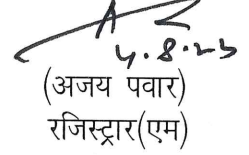 4.8.23
(अजय पवार)
रजिस्ट्रार(एम)